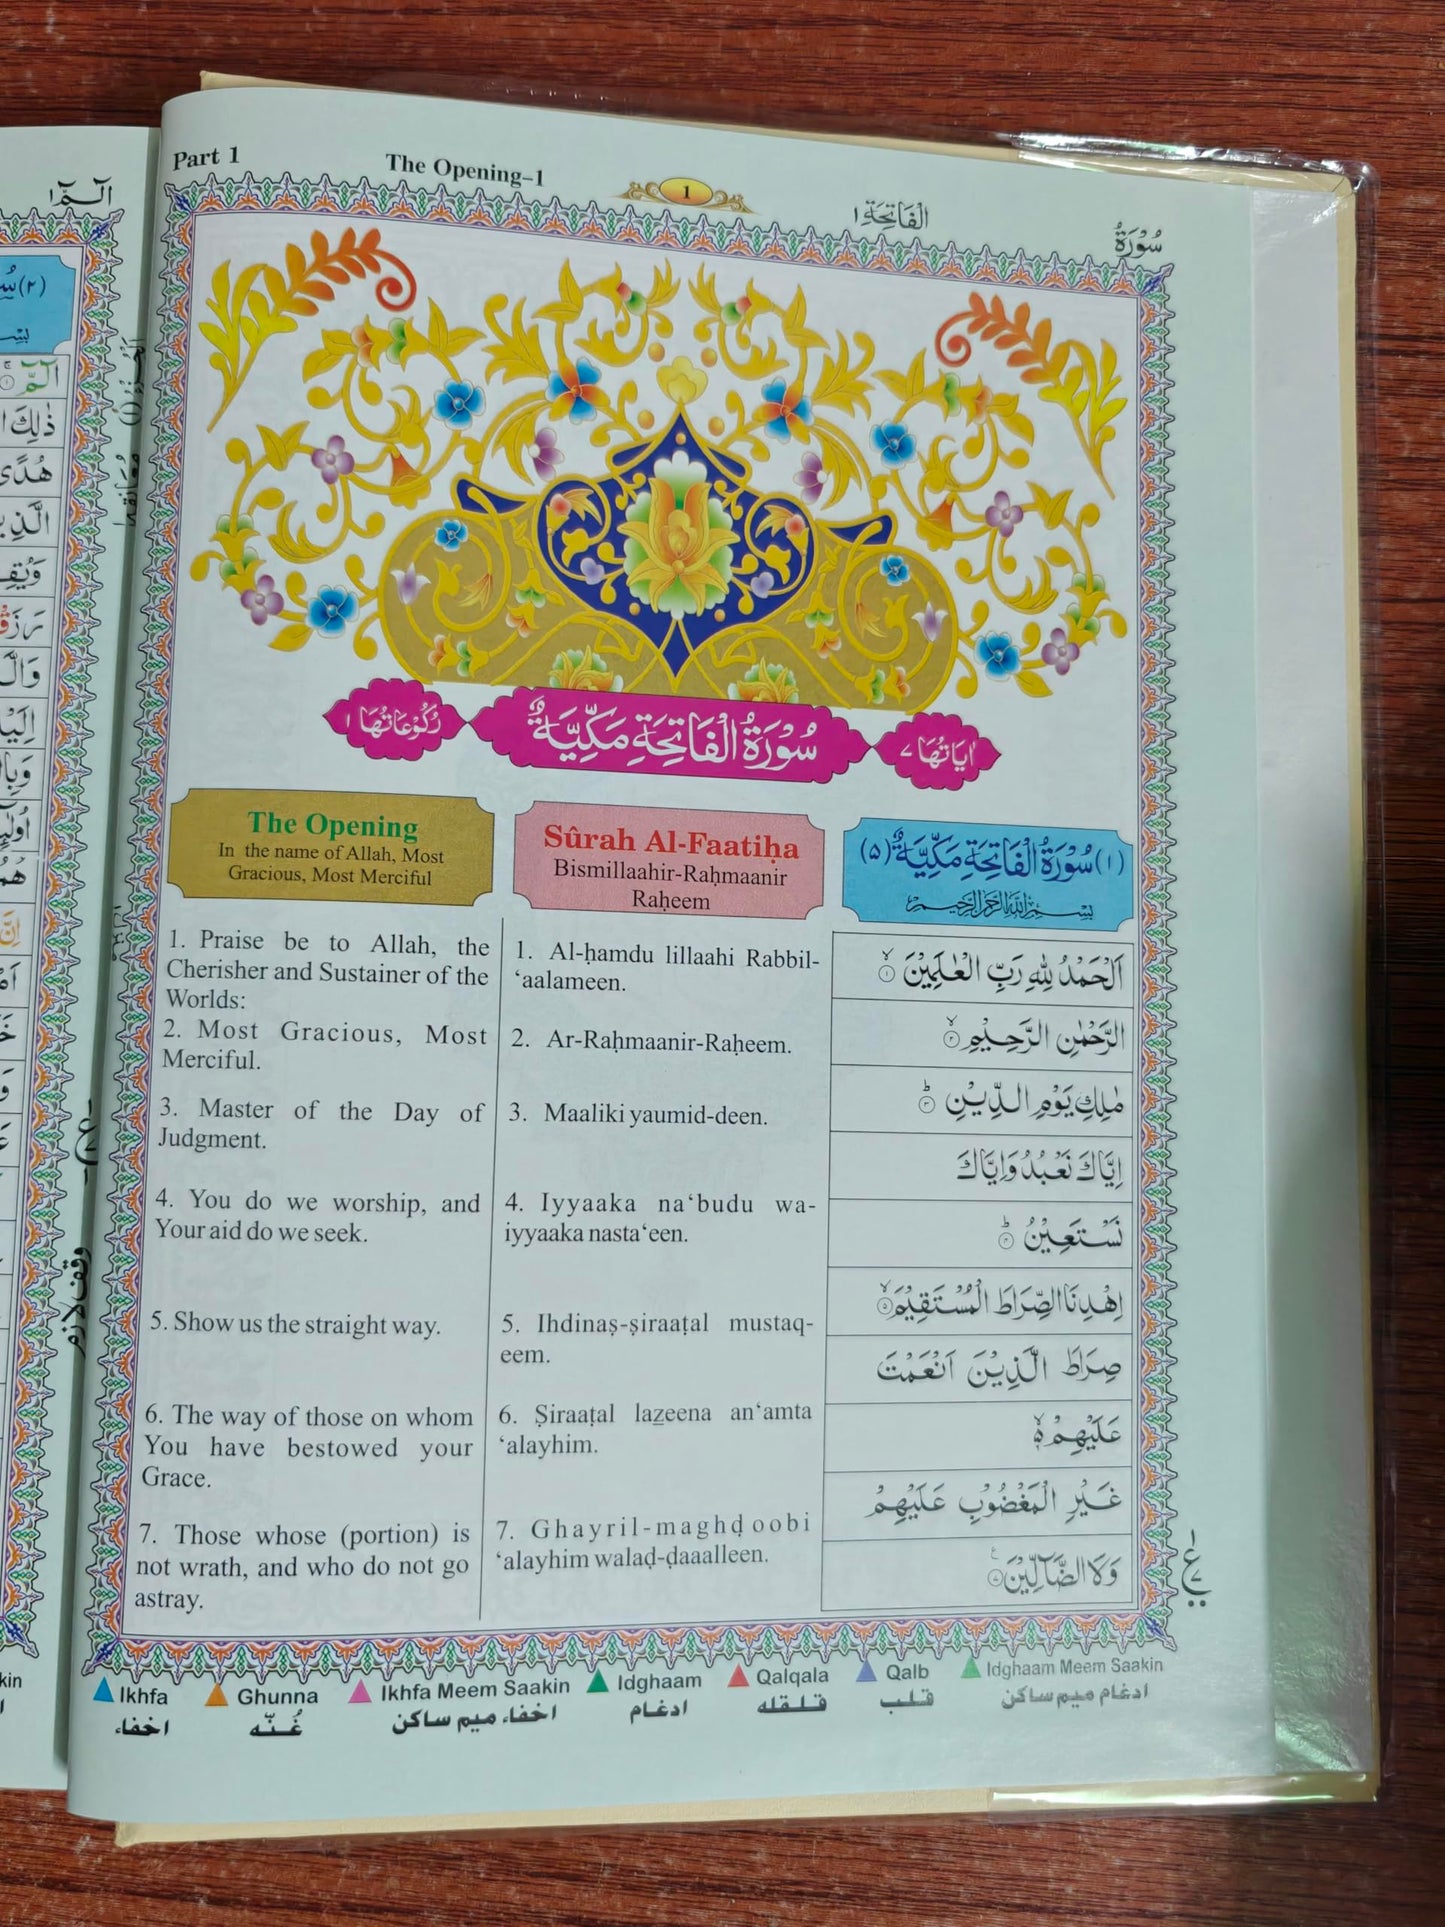 Part 1
The Opening–1
1
الْفَاتِحَة ١
سُوْرَةُ
رُكُوْعَاتُهَا ١
سُوْرَةُ الْفَاتِحَةِ مَكِّيَّةٌ
اٰيَاتُهَا ٧
The Opening
In the name of Allah, Most
Gracious, Most Merciful
1. Praise be to Allah, the
Cherisher and Sustainer of the
Worlds:
2. Most Gracious, Most
Merciful.
3. Master of the Day of
Judgment.
4. You do we worship, and
Your aid do we seek.
5. Show us the straight way.
6. The way of those on whom
You have bestowed your
Grace.
7. Those whose (portion) is
not wrath, and who do not go
astray.
Sûrah Al-Faatiḥa
Bismillaahir-Raḥmaanir
Raḥeem
1. Al-ḥamdu lillaahi Rabbil-
‘aalameen.
2. Ar-Raḥmaanir-Raḥeem.
3. Maaliki yaumid-deen.
4. Iyyaaka na‘budu wa-
iyyaaka nasta‘een.
5. Ihdinaṣ-ṣiraaṭal mustaq-
eem.
6. Ṣiraaṭal lazeena an‘amta
‘alayhim.
7. Ghayril-maghḍoobi
‘alayhim walaḍ-ḍaaalleen.
(١) سُوْرَةُ الْفَاتِحَةِ مَكِّيَّةٌ (٥)
بِسْمِ اللّٰهِ الرَّحْمٰنِ الرَّحِيْمِ
اَلْحَمْدُ لِلّٰهِ رَبِّ الْعٰلَمِيْنَ ۙ ١
الرَّحْمٰنِ الرَّحِيْمِ ۙ ٢
مٰلِكِ يَوْمِ الدِّيْنِ ؕ ٣
اِيَّاكَ نَعْبُدُ وَاِيَّاكَ
نَسْتَعِيْنُ ؕ ٤
اِهْدِنَا الصِّرَاطَ الْمُسْتَقِيْمَ ۙ ٥
صِرَاطَ الَّذِيْنَ اَنْعَمْتَ
عَلَيْهِمْ ۙ ٦
غَيْرِ الْمَغْضُوْبِ عَلَيْهِمْ
وَلَا الضَّآلِّيْنَ ٧
Ikhfa
Ghunna
Ikhfa Meem Saakin
Idghaam
Qalqala
Qalb
Idghaam Meem Saakin
اخفاء
غُنّه
اخفاء میم ساکن
ادغام
قلقله
قلب
ادغام میم ساکن
الٓمّٓ ١
الٓمّٓ
ذٰلِكَ
هُدًى
وقف لازم